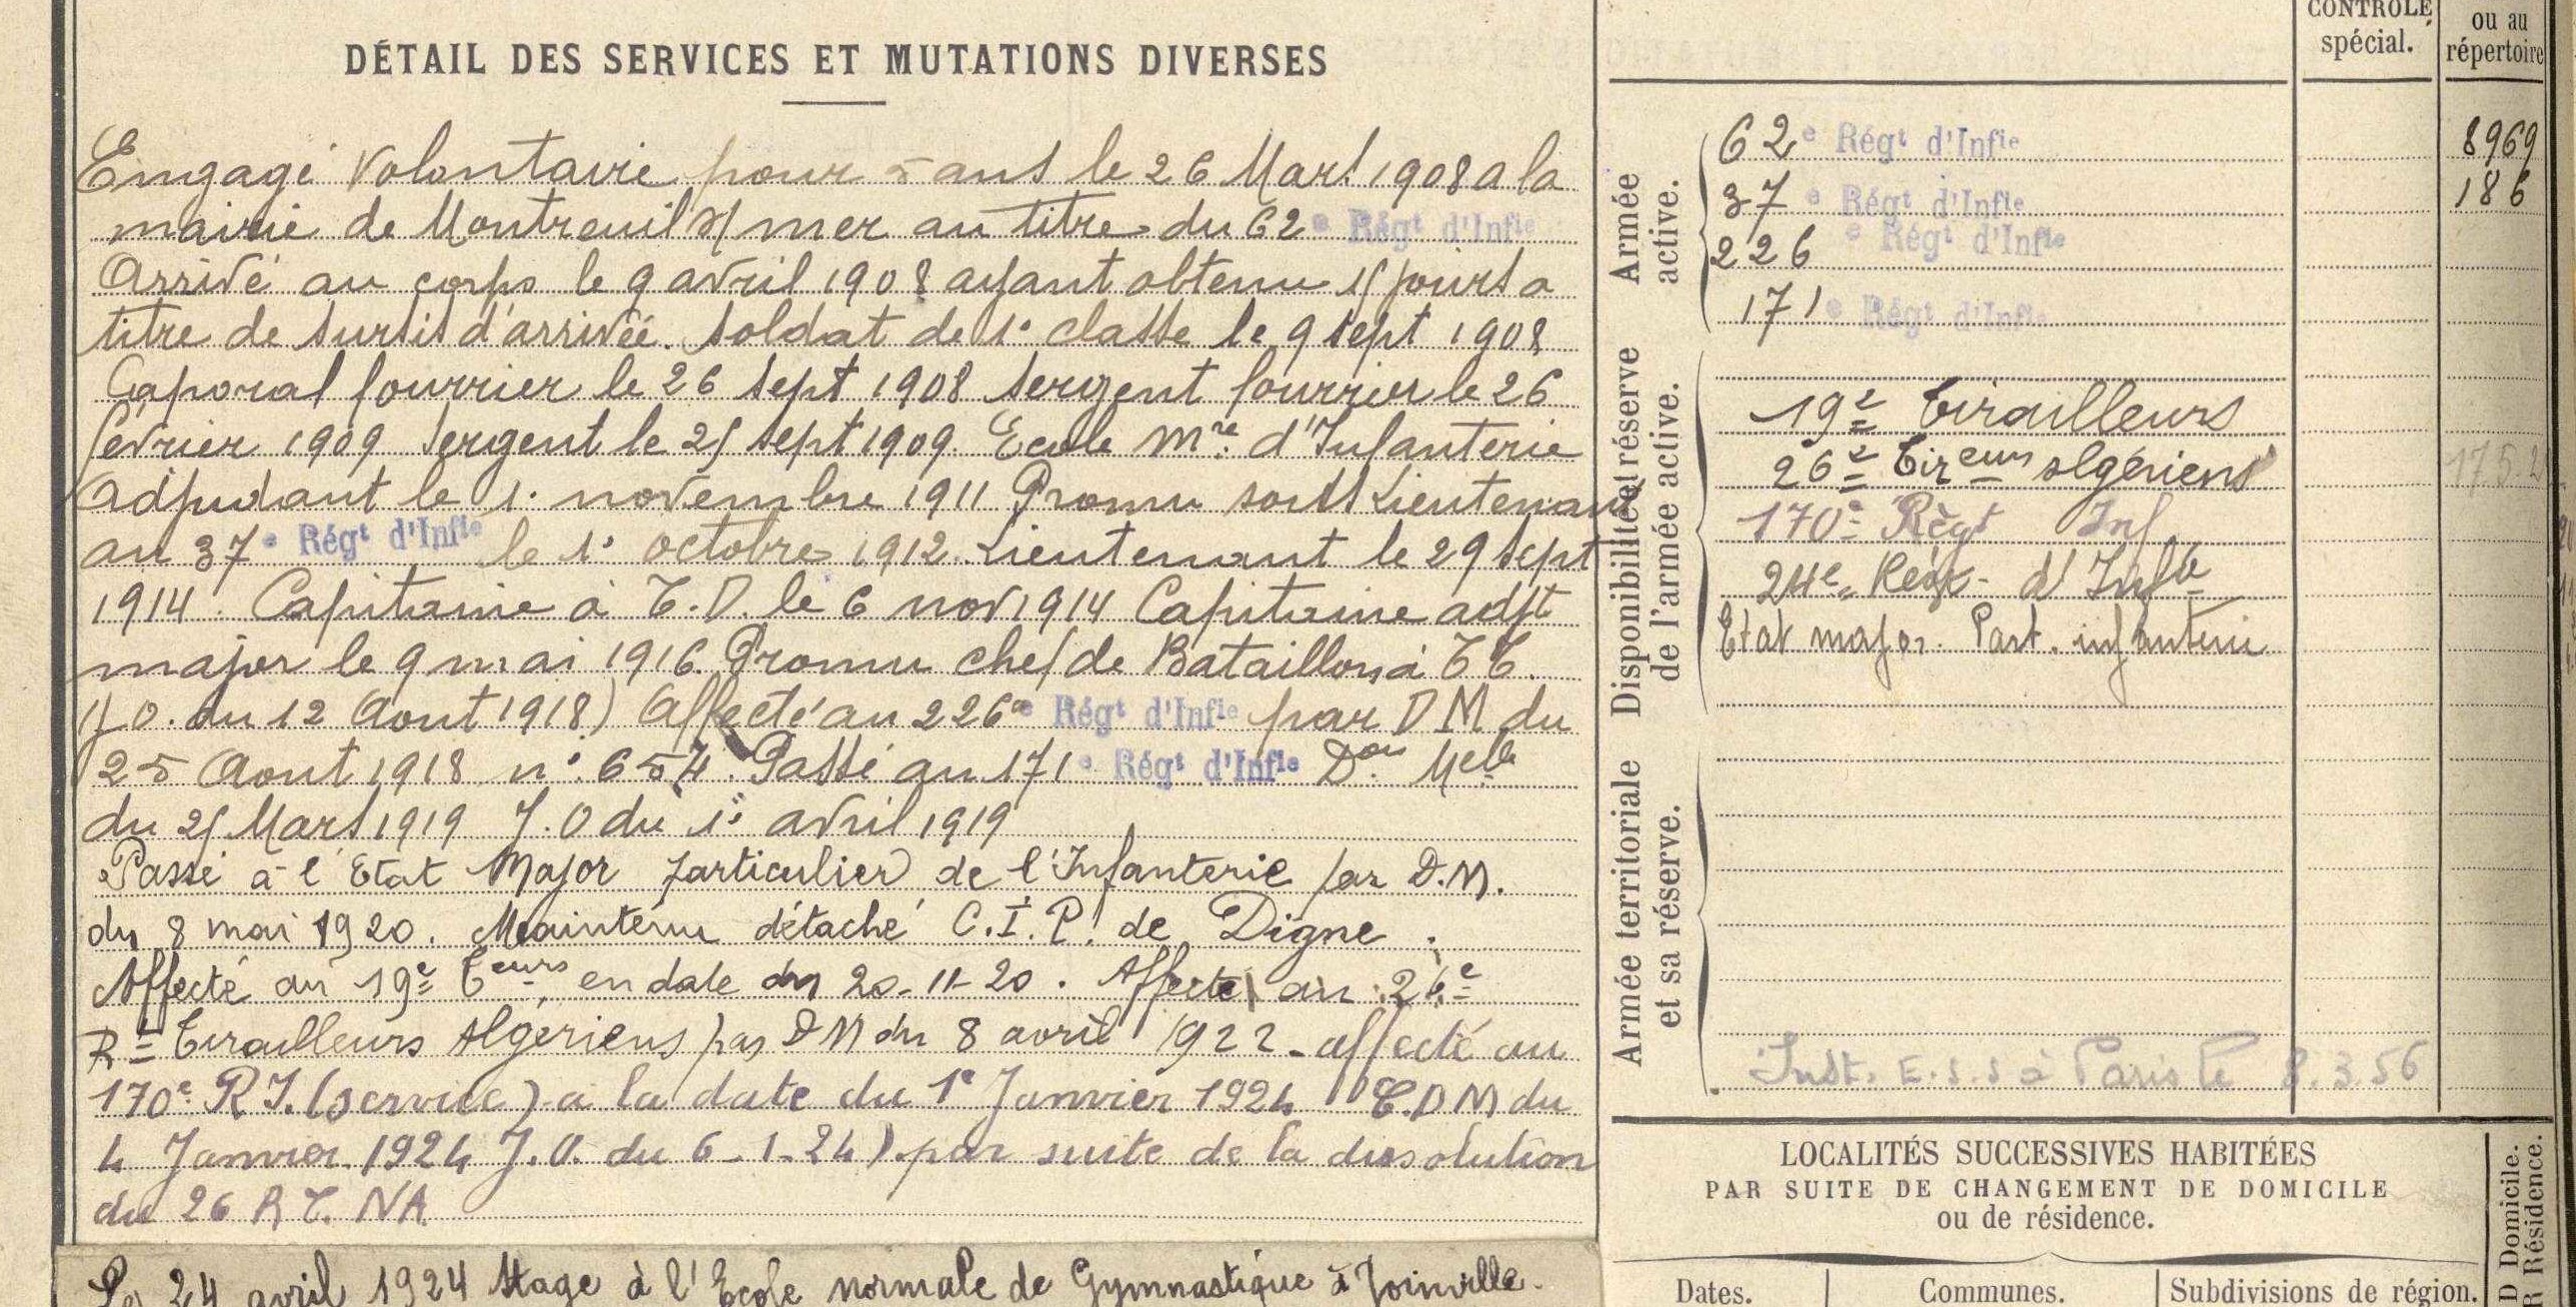 DÉTAIL DES SERVICES ET MUTATIONS DIVERSES
Engagé Volontaire pour 5 ans le 26 Mars 1908 a la
mairie de Montreuil s/ mer au titre du 62e Régt d'Infie
Arrivé au corps le 9 avril 1908 ayant obtenu 15 jours a
titre de sursis d'arrivée. Soldat de 1e classe le 9 sept 1908
Caporal fourrier le 26 sept 1908 sergent fourrier le 26
février 1909 Sergent le 25 sept 1909. Ecole Mre d'Infanterie
Adjudant le 1. novembre 1911 Promu sous Lieutenant
au 37e Régt d'Infie le 1e octobre 1912. Lieutenant le 29 sept
1914. Capitaine à T.D. le 6 nov 1914 Capitaine adjt
major le 9 mai 1916. Promu chef de Bataillon à T T.
(J O. du 12 Aout 1918) Affecté au 226e Régt d'Infie par D M du
25 Aout 1918 n° 654. Passé au 171e Régt d'Infie Don Melle
du 25 Mars 1919 J.O du 1e avril 1919
Passé à l'Etat Major particulier de l'Infanterie par D.M.
du 8 mai 1920. Maintenu détaché C.I.P. de Digne.
Affecté au 19e Teurs, en date du 20-11-20. Affecté au 26e
Rt Tirailleurs Algeriens par DM du 8 avril 1922 - affecté au
170e R I. (service) a la date du 1e Janvier 1924 (T.D M du
4 Janvier 1924 J.O. du 6-1-24) par suite de la dissolution
du 26 R T. NA
Le 24 avril 1924 Stage à l'Ecole normale de Gymnastique à Joinville.
CONTRÔLE
spécial.
ou au
répertoire
Armée
active.
62e Régt d'Infie
37e Régt d'Infie
226e Régt d'Infie
171e Régt d'Infie
8969
186
Disponibilité et réserve
de l'armée active.
19e Tirailleurs
26e Tireurs algériens
1752
170e Régt Inf
24e Régt d'Infie
Etat major. Part. infanterie
Armée territoriale
et sa réserve.
Inst. E.S.S à Paris le 8.3.56
LOCALITÉS SUCCESSIVES HABITÉES
PAR SUITE DE CHANGEMENT DE DOMICILE
ou de résidence.
Dates.
Communes.
Subdivisions de région.
D Domicile.
R Résidence.